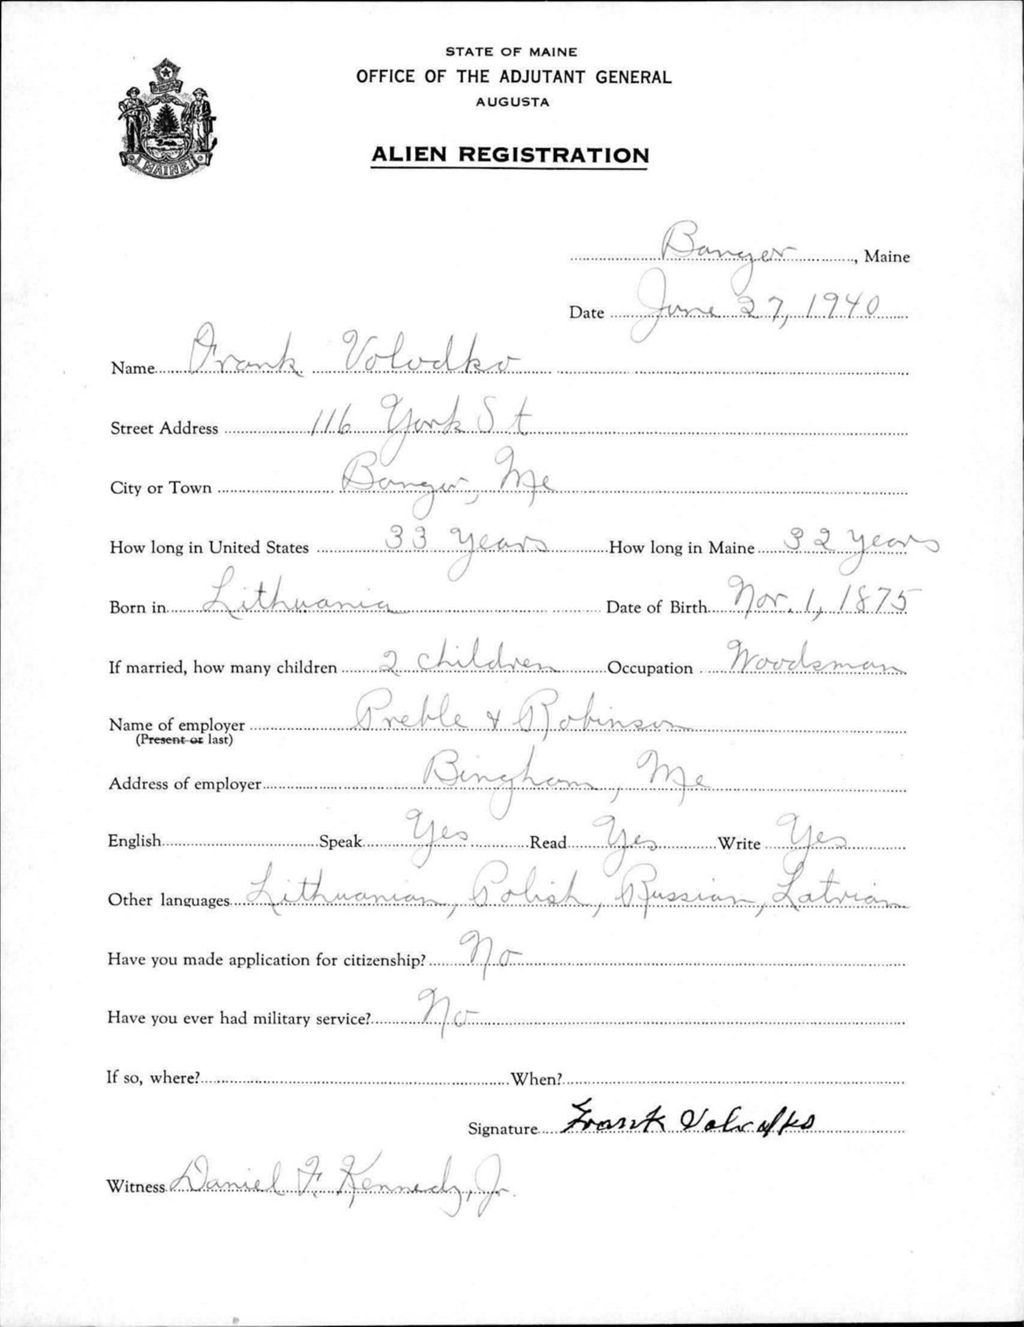 STATE OF MAINE
OFFICE OF THE ADJUTANT GENERAL
AUGUSTA
ALIEN REGISTRATION
MAINE
Bangor, Maine
Date June 27, 1940
Name Frank Volodko
Street Address 116 York St
City or Town Bangor, Me
How long in United States 33 years How long in Maine 32 years
Born in Lithuania Date of Birth Nov. 1, 1875
If married, how many children 2 children Occupation Woodsman
Name of employer Preble & Robinson
(Present or last)
Address of employer Bingham, Me
English Speak Yes Read Yes Write Yes
Other languages Lithuanian, Polish, Russian, Latvian
Have you made application for citizenship? No
Have you ever had military service? No
If so, where? When?
Signature Frank Volodko
Witness Daniel F. Kennedy, Jr.